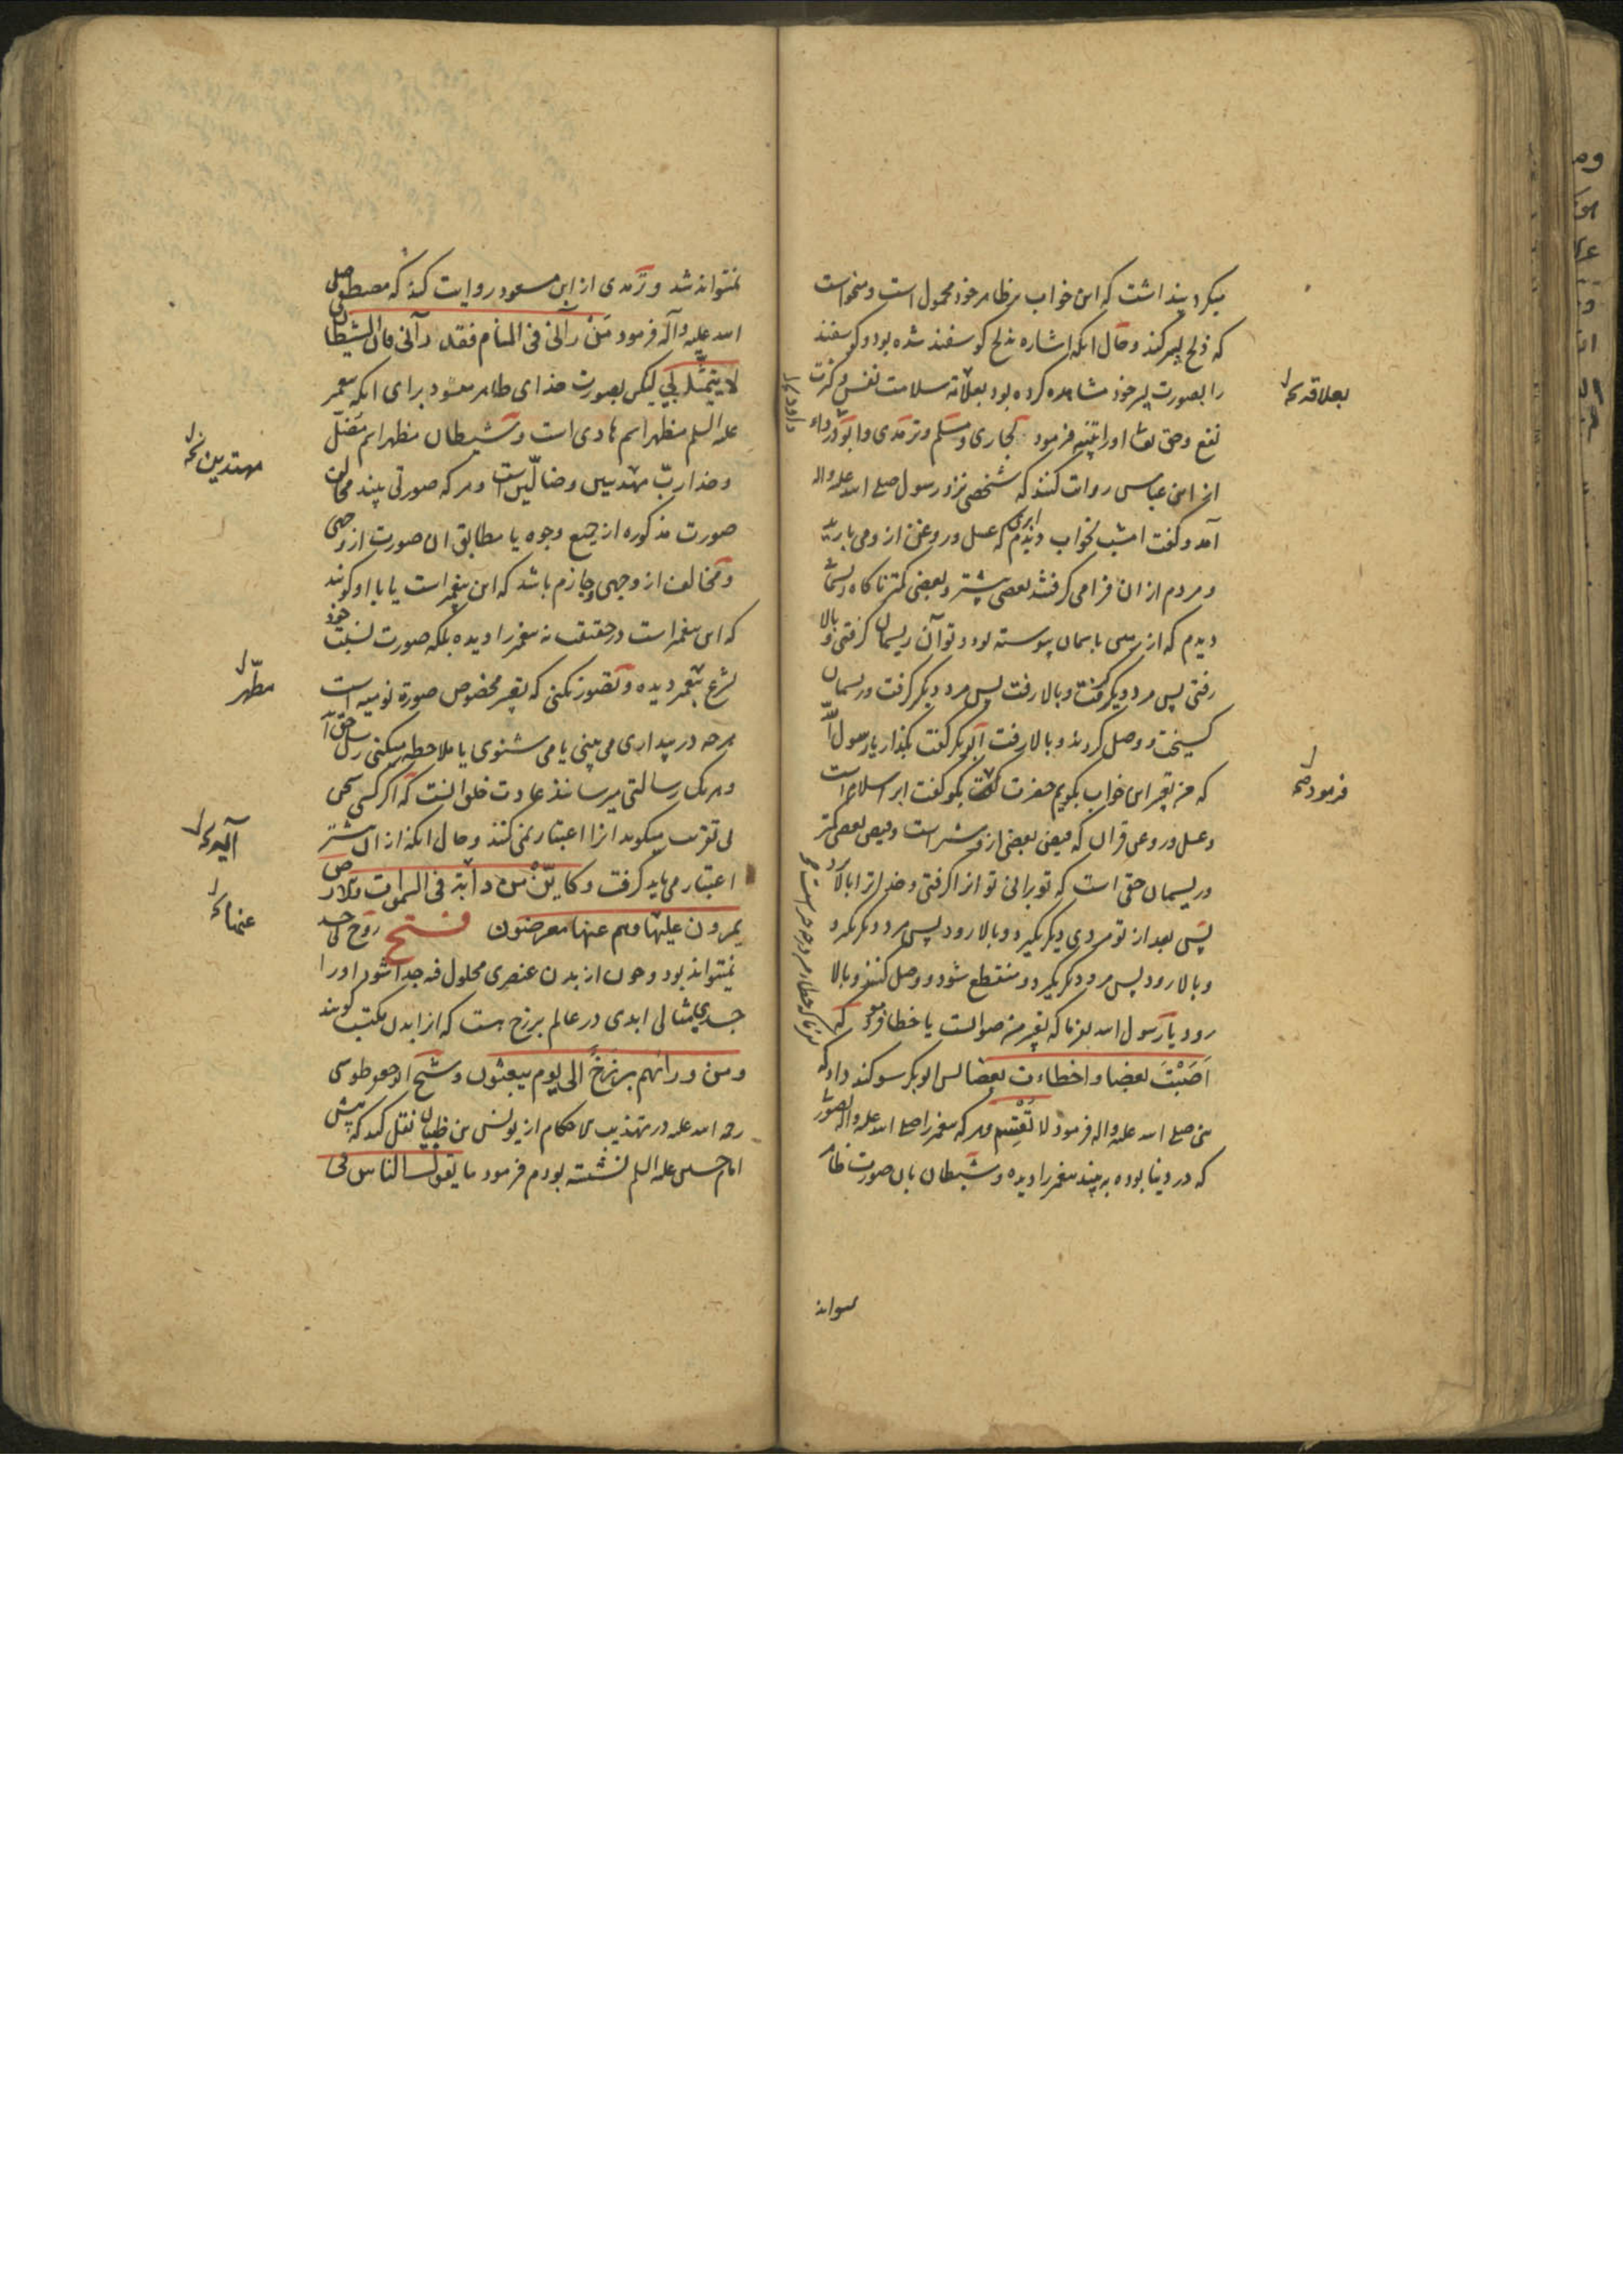 میکرد پنداشت که این خواب بر ظاهر خود محمول است و میخواست
که ذبح پسر کند و حال انکه اشاره بذبح کوسفند شده بود و کوسفند
را بصورت پسر خود مشاهده کرده بود بعلاقه سلامت نفس و کثرت
نفع و حق تعا اورا تنبیه فرمود بخاری و مسلم و ترمدی و ابو درداء
از ابن عباس روایت کنند که شخصی نزد رسول صلی الله علیه واله
آمد و کفت امشب بخواب دیدم ابری که عسل و روغن از و می بارید
و مردم از ان فرا می کرفتند بعضی بیشتر و بعضی کمتر ناکاه ریسمانی
دیدم که از زمین باسمان پیوسته بود و تو آن ریسمان کرفتی و بالا
رفتی پس مرد دیکر کرفت و بالا رفت پس مرد دیکر کرفت و ریسمان
کسیخت و وصل کردند و بالا رفت ابوبکر کفت بکذار یا رسول الله
که من تعبیر این خواب بکویم حضرت کفت بکو کفت ابر اسلام است
و عسل و روغن قران که فیض بعضی از و بیشتر است و فیض بعضی کمتر
و ریسمان حق است که تو برانی تو انرا کرفتی و خدا ترا بالا برد
پس بعد از تو مردی دیکر بکیرد و بالا رود پس مرد دیکر بکیرد و
و بالا رود پس مرد دیکر بکیرد و منقطع شود و وصل کنند و بالا
رود یا رسول الله بفرما که تعبیر من صوابست یا خطا فرمود که
اَصَبْتَ بعضا و اخطاءت بعضا پس ابوبکر سوکند داد که
نبی صلی الله علیه واله فرمود لا تُقْسِم و هر که پیغمبر را صلی الله علیه واله بصورتی
که در دنیا بوده به بیند پیغمبر را دیده و شیطان بان صورت ظاهر
بعلاقه
فرمود
داود
نمیتواند شد و ترمدی از ابن مسعود روایت کند که مصطفی صلی
الله علیه و آله فرمود مَنْ رآنی فی المنام فقد رآنی فان الشیطان
لا یتمثّل بی لیکن بصورت خدای ظاهر میشود برای انکه پیغمبر
علیه السلم مظهر اسم هادی است و شیطان مظهر اسم مضلّ
و خدا ربّ مهتدیین و ضالّین است و هر که صورتی بیند مخالف
صورت مذکوره از جمیع وجوه یا مطابق ان صورت از وجهی
و مخالف از وجهی و جازم باشد که این پیغمبر است یا با او کویند
که این پیغمبر است در حقیقت نه پیغمبر را دیده بلکه صورت نسبت خود
بشرع پیغمبر دیده و تصور نکنی که تعبیر مخصوص صورة نومیه است
هر چه در بیداری می بینی یا می شنوی یا ملاحظه میکنی رسل حق اند
و هر یک رسالتی میرسانند عادت خلق انست که اکر کسی سخن
بی تقریب میکوید انرا اعتبار نمی کنند و حال انکه از ان بیشتر
اعتبار می باید کرفت و کایّنْ من دابّة فی السموات والارض
یمرون علیها وهم عنها معرضون فتح روح بی جسد
نمیتواند بود و چون از بدن عنصری محلول فیه جدا شود اورا
جسدی مثالی ابدی در عالم برزخ هست که از ابدن مکتسب کویند
ومن ورائهم برزخ الی یوم یبعثون و شیخ ابو جعفر طوسی
رحمه الله علیه در تهذیب الاحکام از یونس بن ظبیان نقل کند که پیش
امام حسین علیه السلم نشسته بودم فرمود ما یقول الناس فی
مهتدین
مطهر
عنها